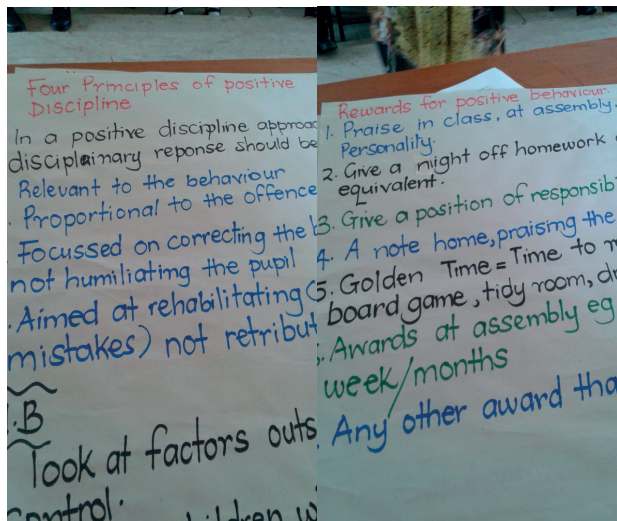 Four Principles of positive
Discipline
In a positive discipline approac
disciplainary reponse should be
Relevant to the behaviour
Proportional to the offence
Focussed on correcting the b
not humiliating the pupil
Aimed at rehabilitating (
mistakes) not retribut
.B
look at factors outs
control.
children w
Rewards for positive behaviour.
1. Praise in class, at assembly.
Personality.
2. Give a night off homework
equivalent.
3. Give a position of responsib
4. A note home, praising the
5. Golden Time = Time to
board game, tidy room, dr
. Awards at assembly eg
week/months
. Any other award tha